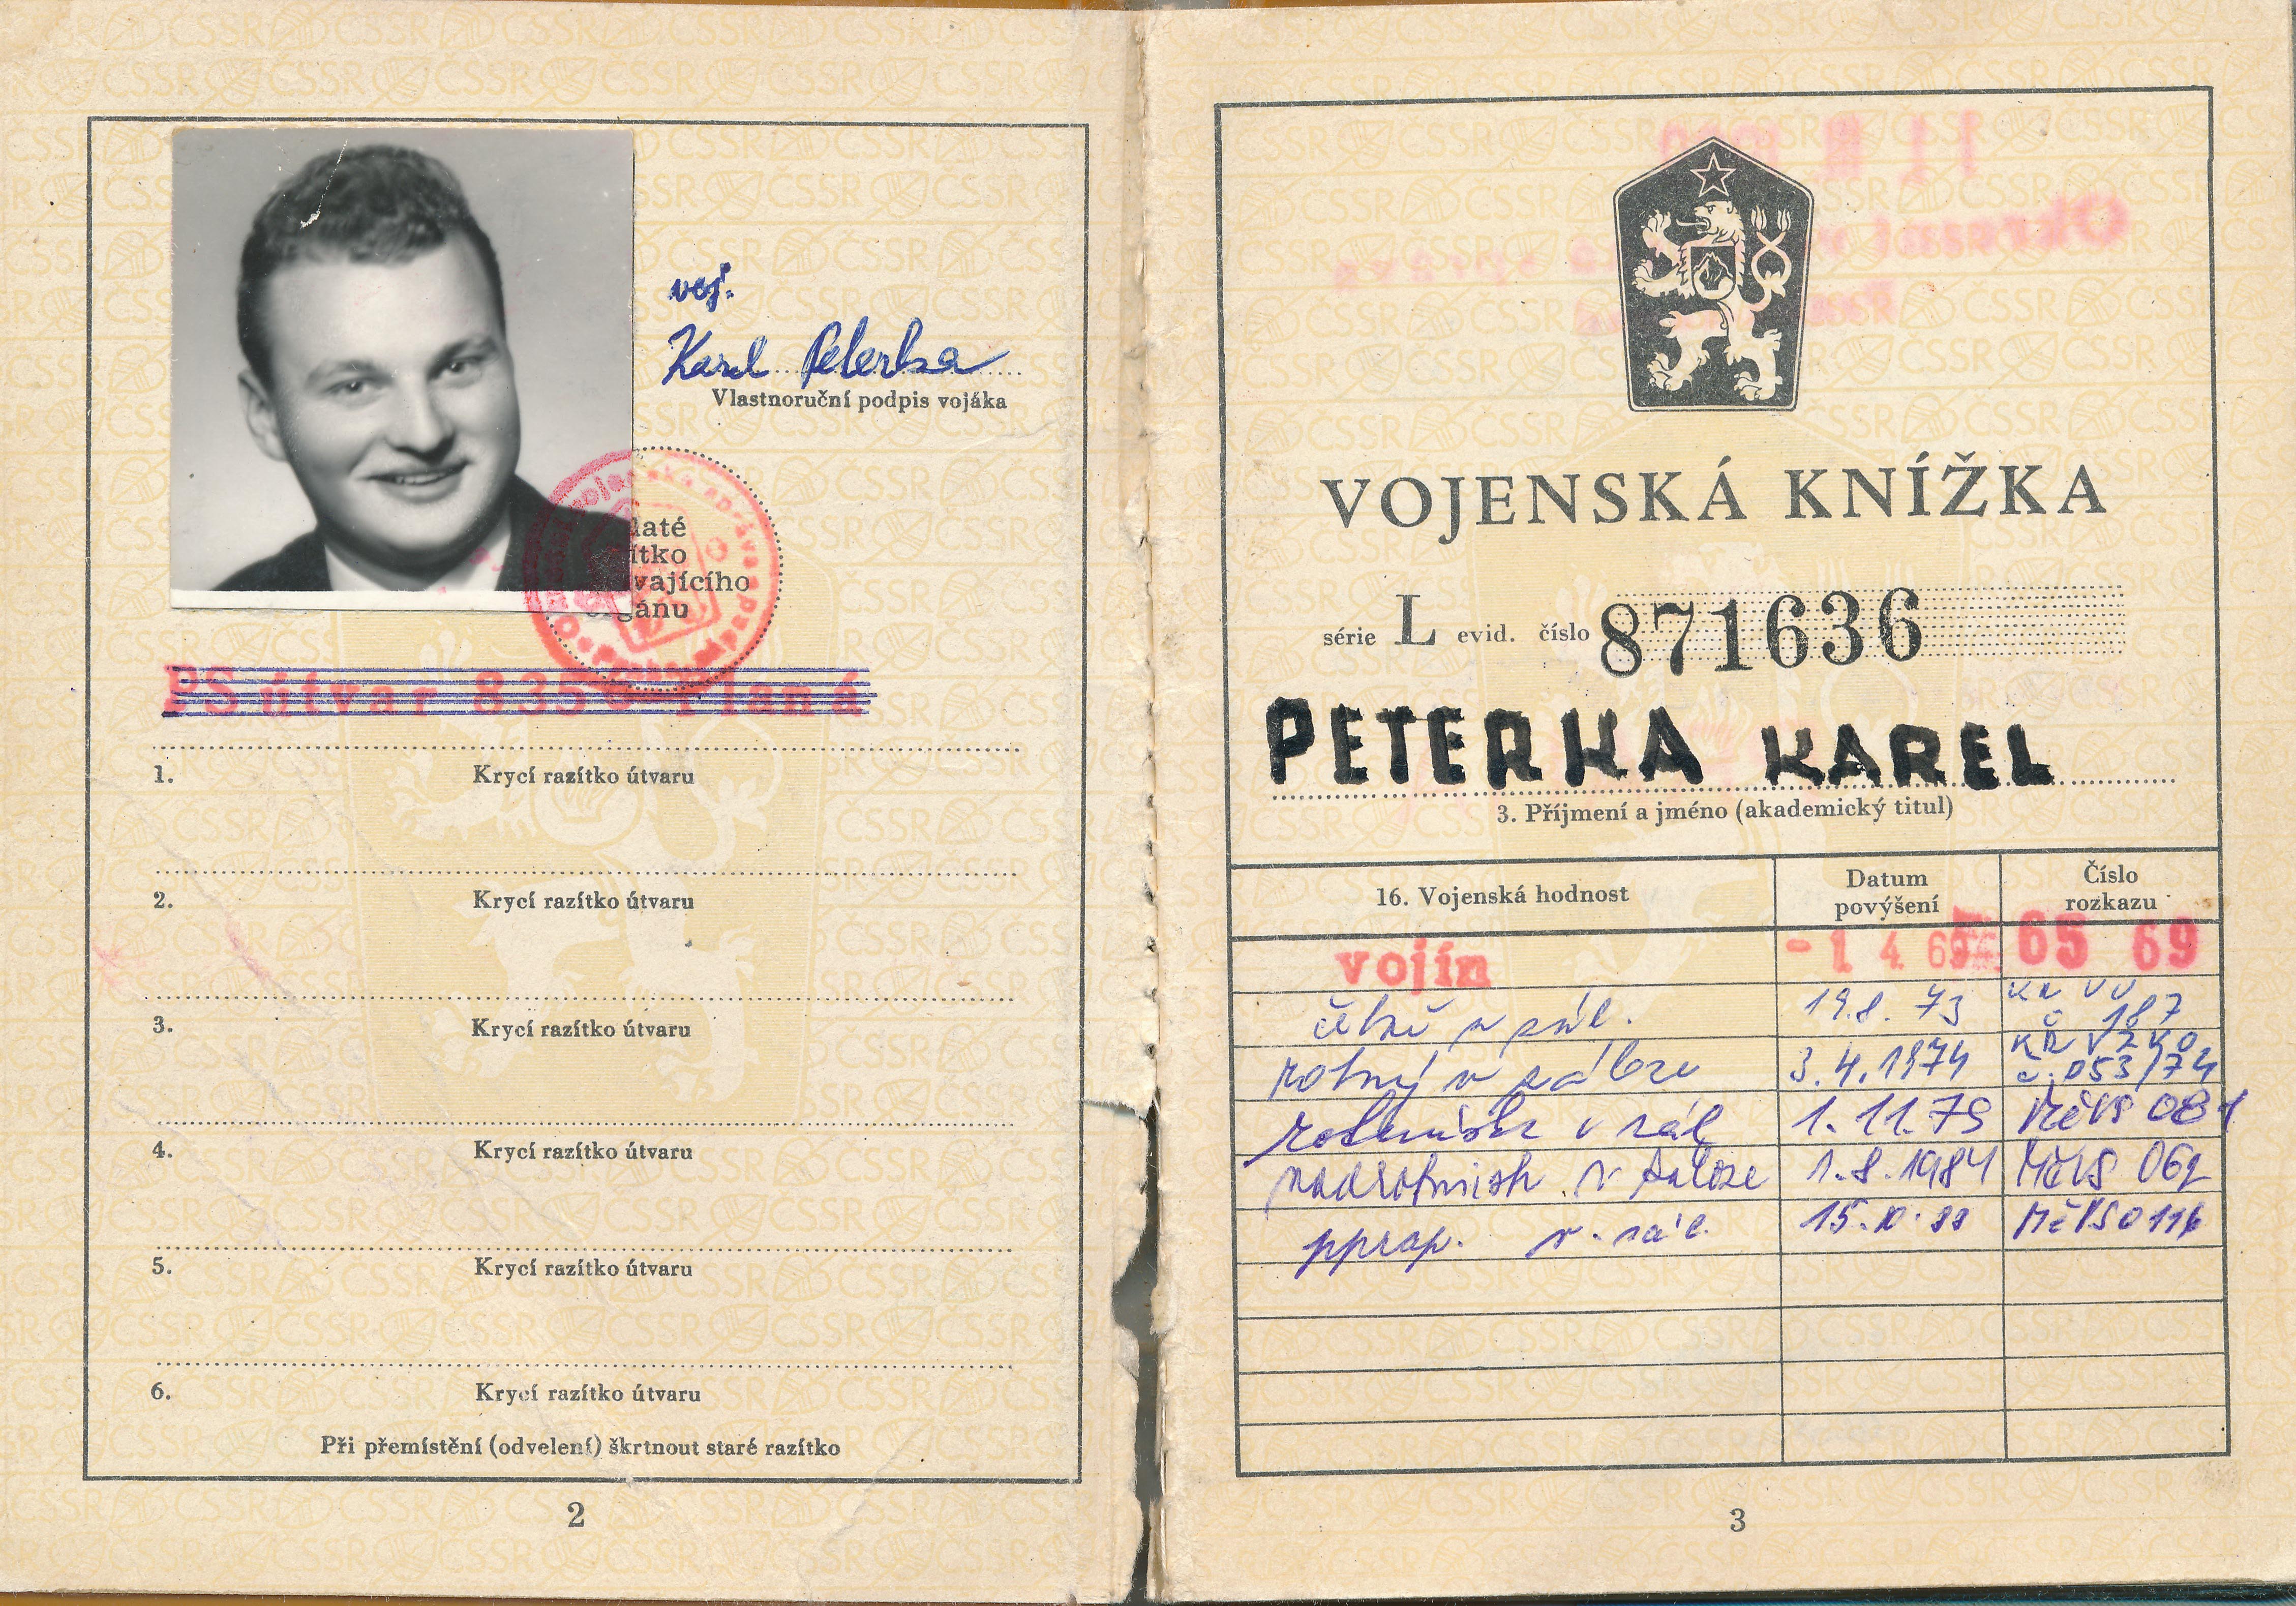 voj.
Karel Peterka
Vlastnoruční podpis vojáka
laté
ítko
vajícího
orgánu
PS útvar 8358 Planá
1. Krycí razítko útvaru
2. Krycí razítko útvaru
3. Krycí razítko útvaru
4. Krycí razítko útvaru
5. Krycí razítko útvaru
6. Krycí razítko útvaru
Při přemístění (odvelení) škrtnout staré razítko
2
VOJENSKÁ KNÍŽKA
série L evid. číslo 871636
PETERKA KAREL
3. Příjmení a jméno (akademický titul)
16. Vojenská hodnost Datum povýšení Číslo rozkazu
vojín - 1 4 69 65 69
v zál. 19.8. 73 187
rotný v záloze 3.4.1974 č. 053/74
rotmistr v zál 1.11.79 MěVS 081
nadrotmistr v záloze 1.8.1984 MěVS 062
pprap. v. zál. 15.10.88 MěVS 0116
3